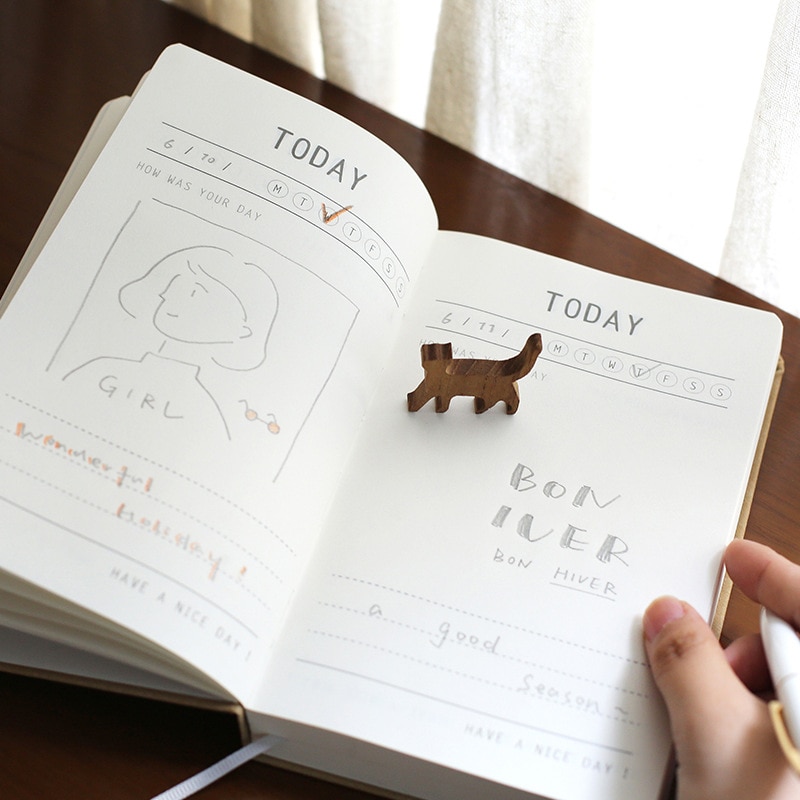 TODAY
6 / 10 /
M T W T F S S
HOW WAS YOUR DAY
GIRL
Wonderful
Holiday!
HAVE A NICE DAY!
TODAY
6 / 11 /
M T W T F S S
HOW WAS YOUR DAY
BON
IVER
BON HIVER
a good
season~
HAVE A NICE DAY!